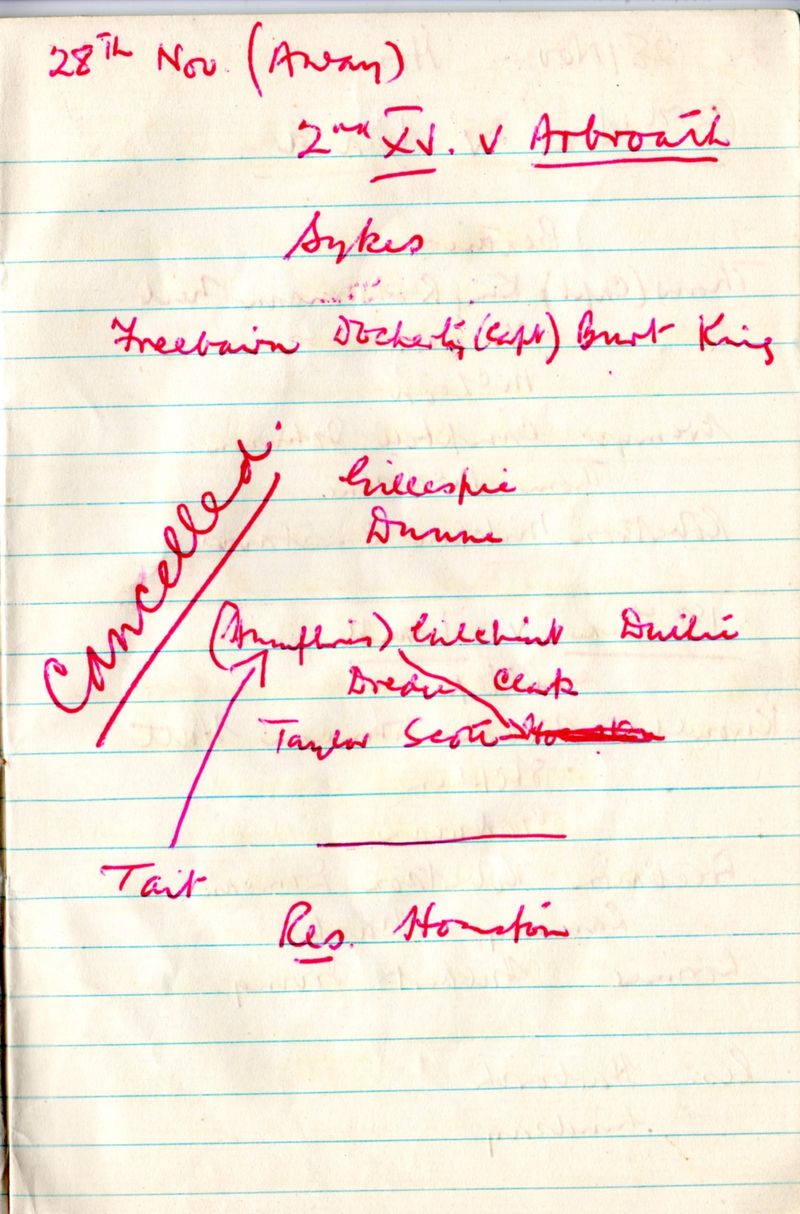 28TH Nov. (Away)
2nd XV. v Arbroath
Sykes
Freebairn Docherty (Capt) Burt King
Cancelled.
Gillespie
Dunne
(Humphries) Gilchrist
Clark
Taylor Scott
Tait
Res. Houston